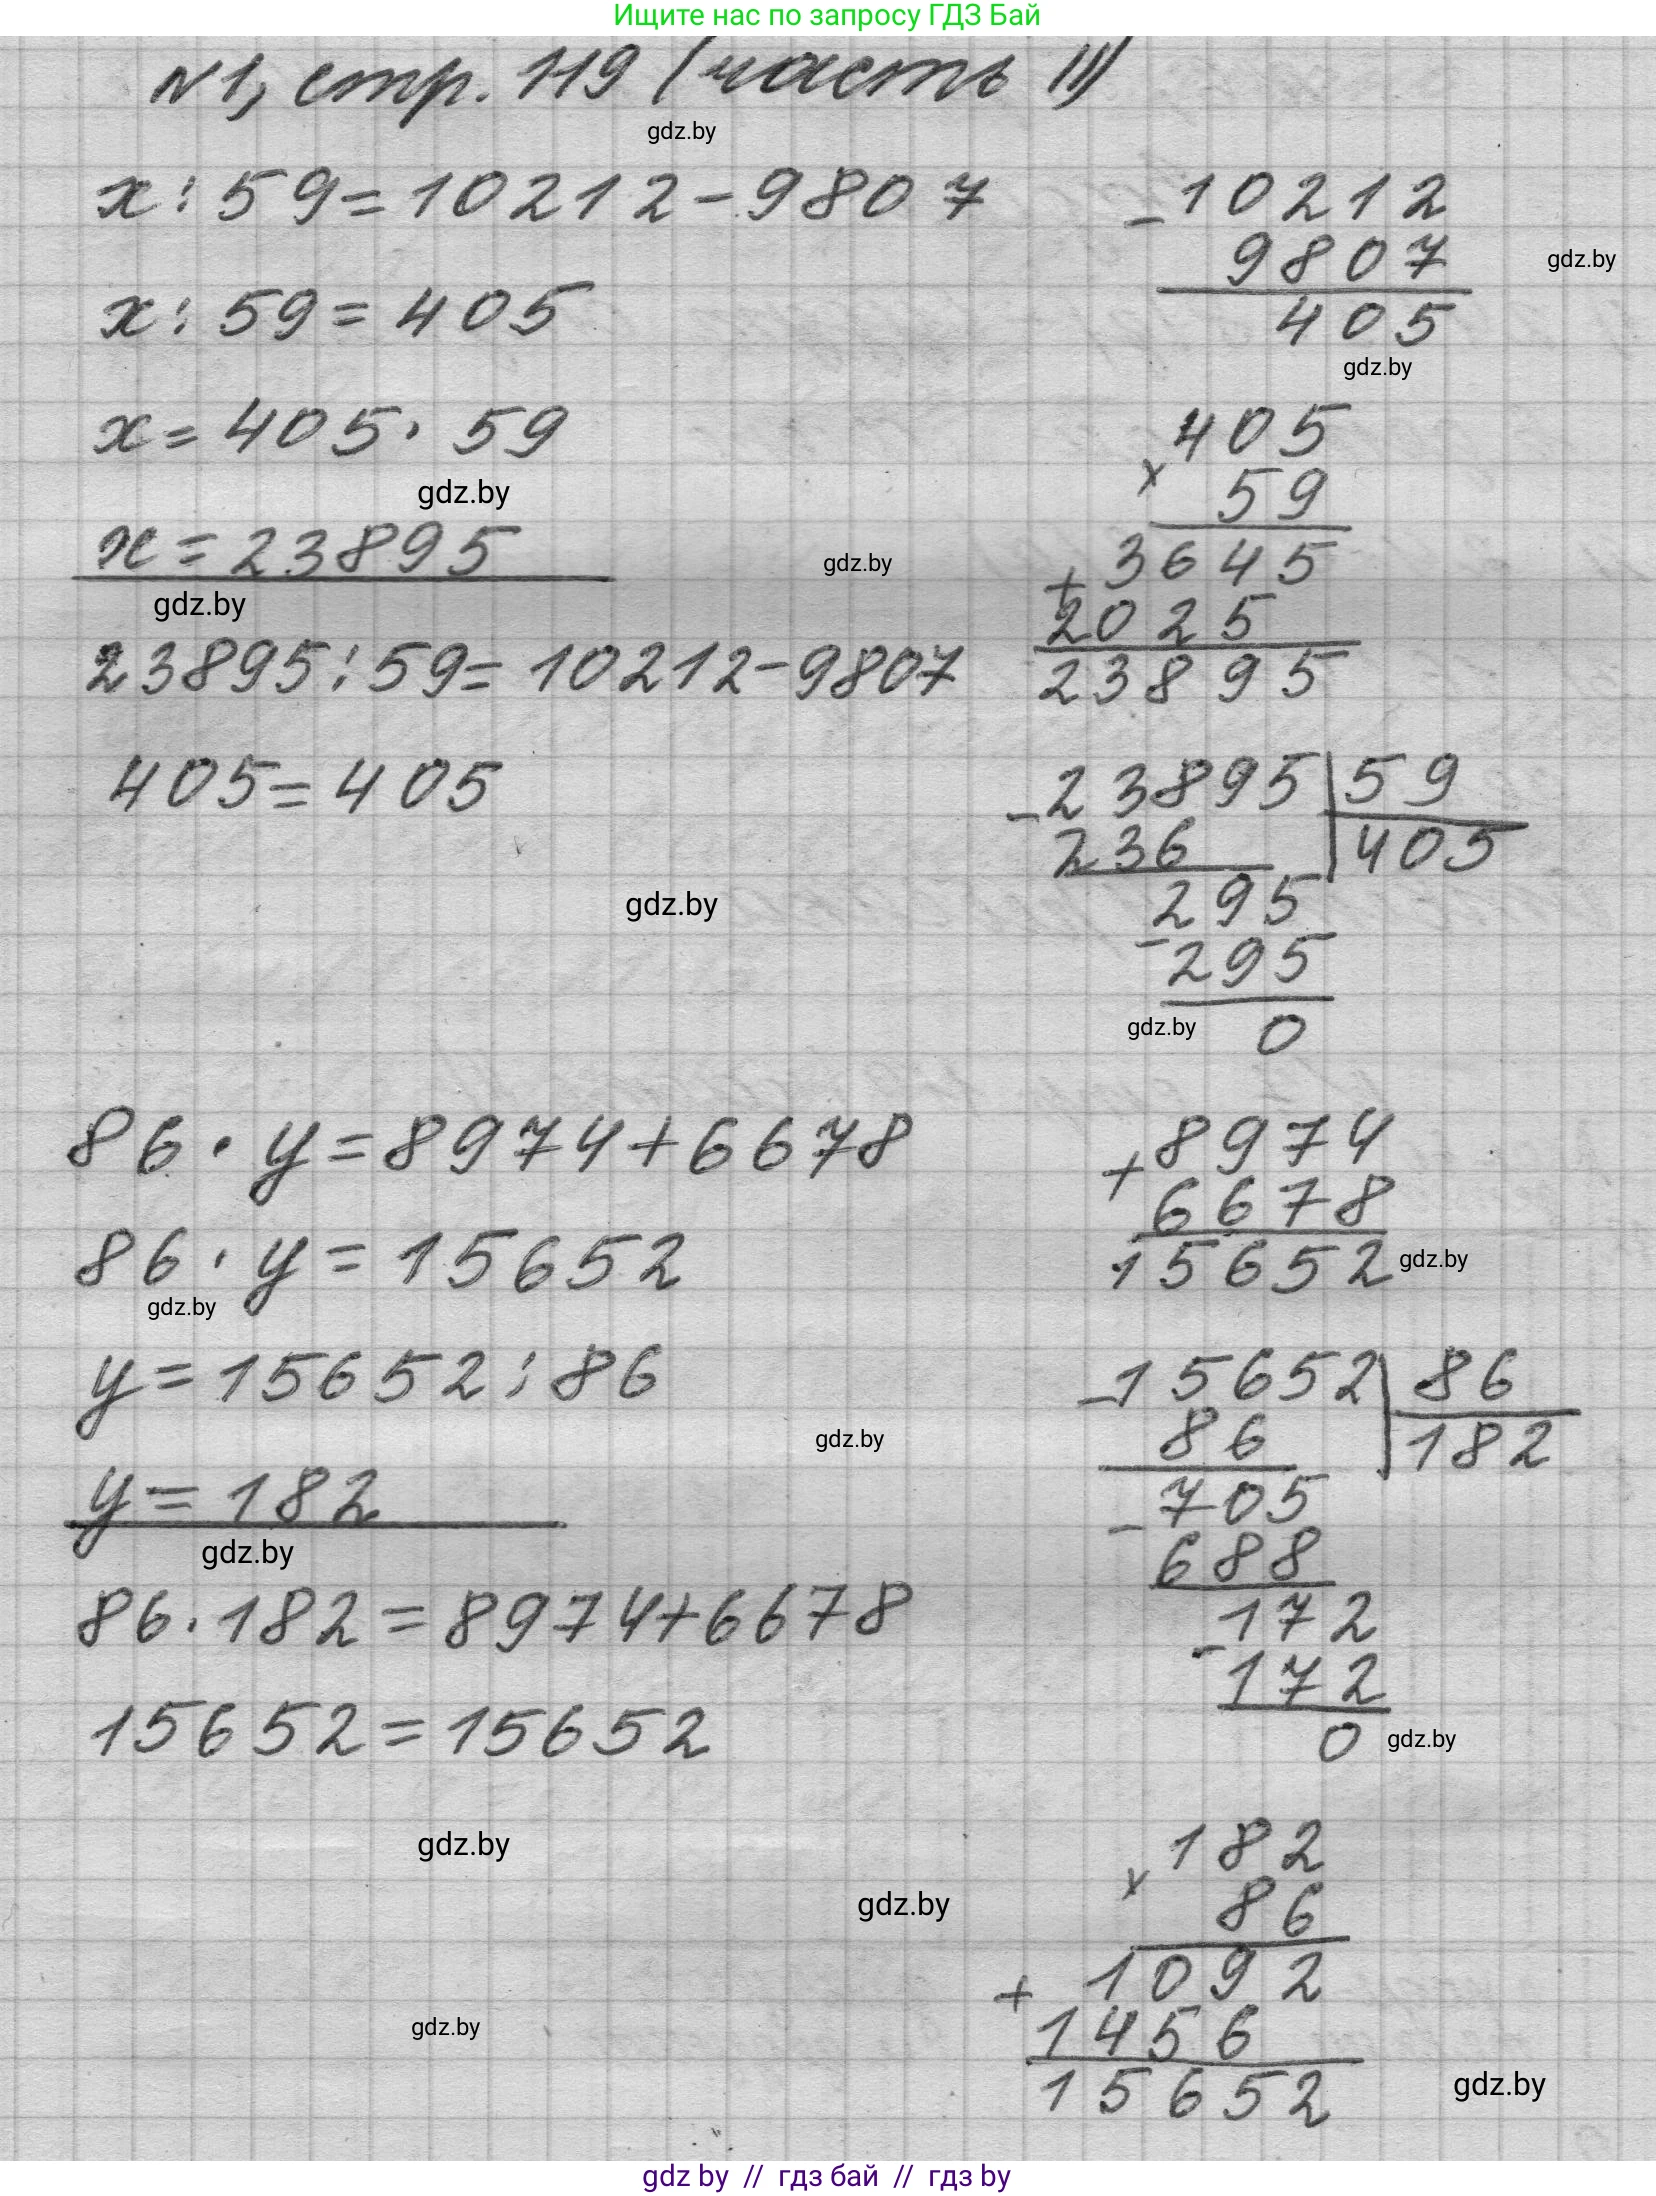 Ищите нас по запросу ГДЗ Бай
N1, стр. 119 (часть II)
gdz.by
x : 59 = 10212 - 9807
x : 59 = 405
x = 405 · 59
gdz.by
x = 23895
gdz.by
gdz.by
23895 : 59 = 10212 - 9807
405 = 405
gdz.by
- 10212
9807
405
gdz.by
gdz.by
405
x 59
+ 3645
2025
23895
- 23895 | 59
236 | 405
295
- 295
0
gdz.by
86 · y = 8974 + 6678
86 · y = 15652
gdz.by
y = 15652 : 86
gdz.by
y = 182
gdz.by
86 · 182 = 8974 + 6678
15652 = 15652
gdz.by
gdz.by
gdz.by
+ 8974
6678
15652
gdz.by
- 15652 | 86
86 | 182
- 705
688
172
- 172
0
gdz.by
182
x 86
+ 1092
1456
15652
gdz.by
gdz by // гдз бай // gdz by